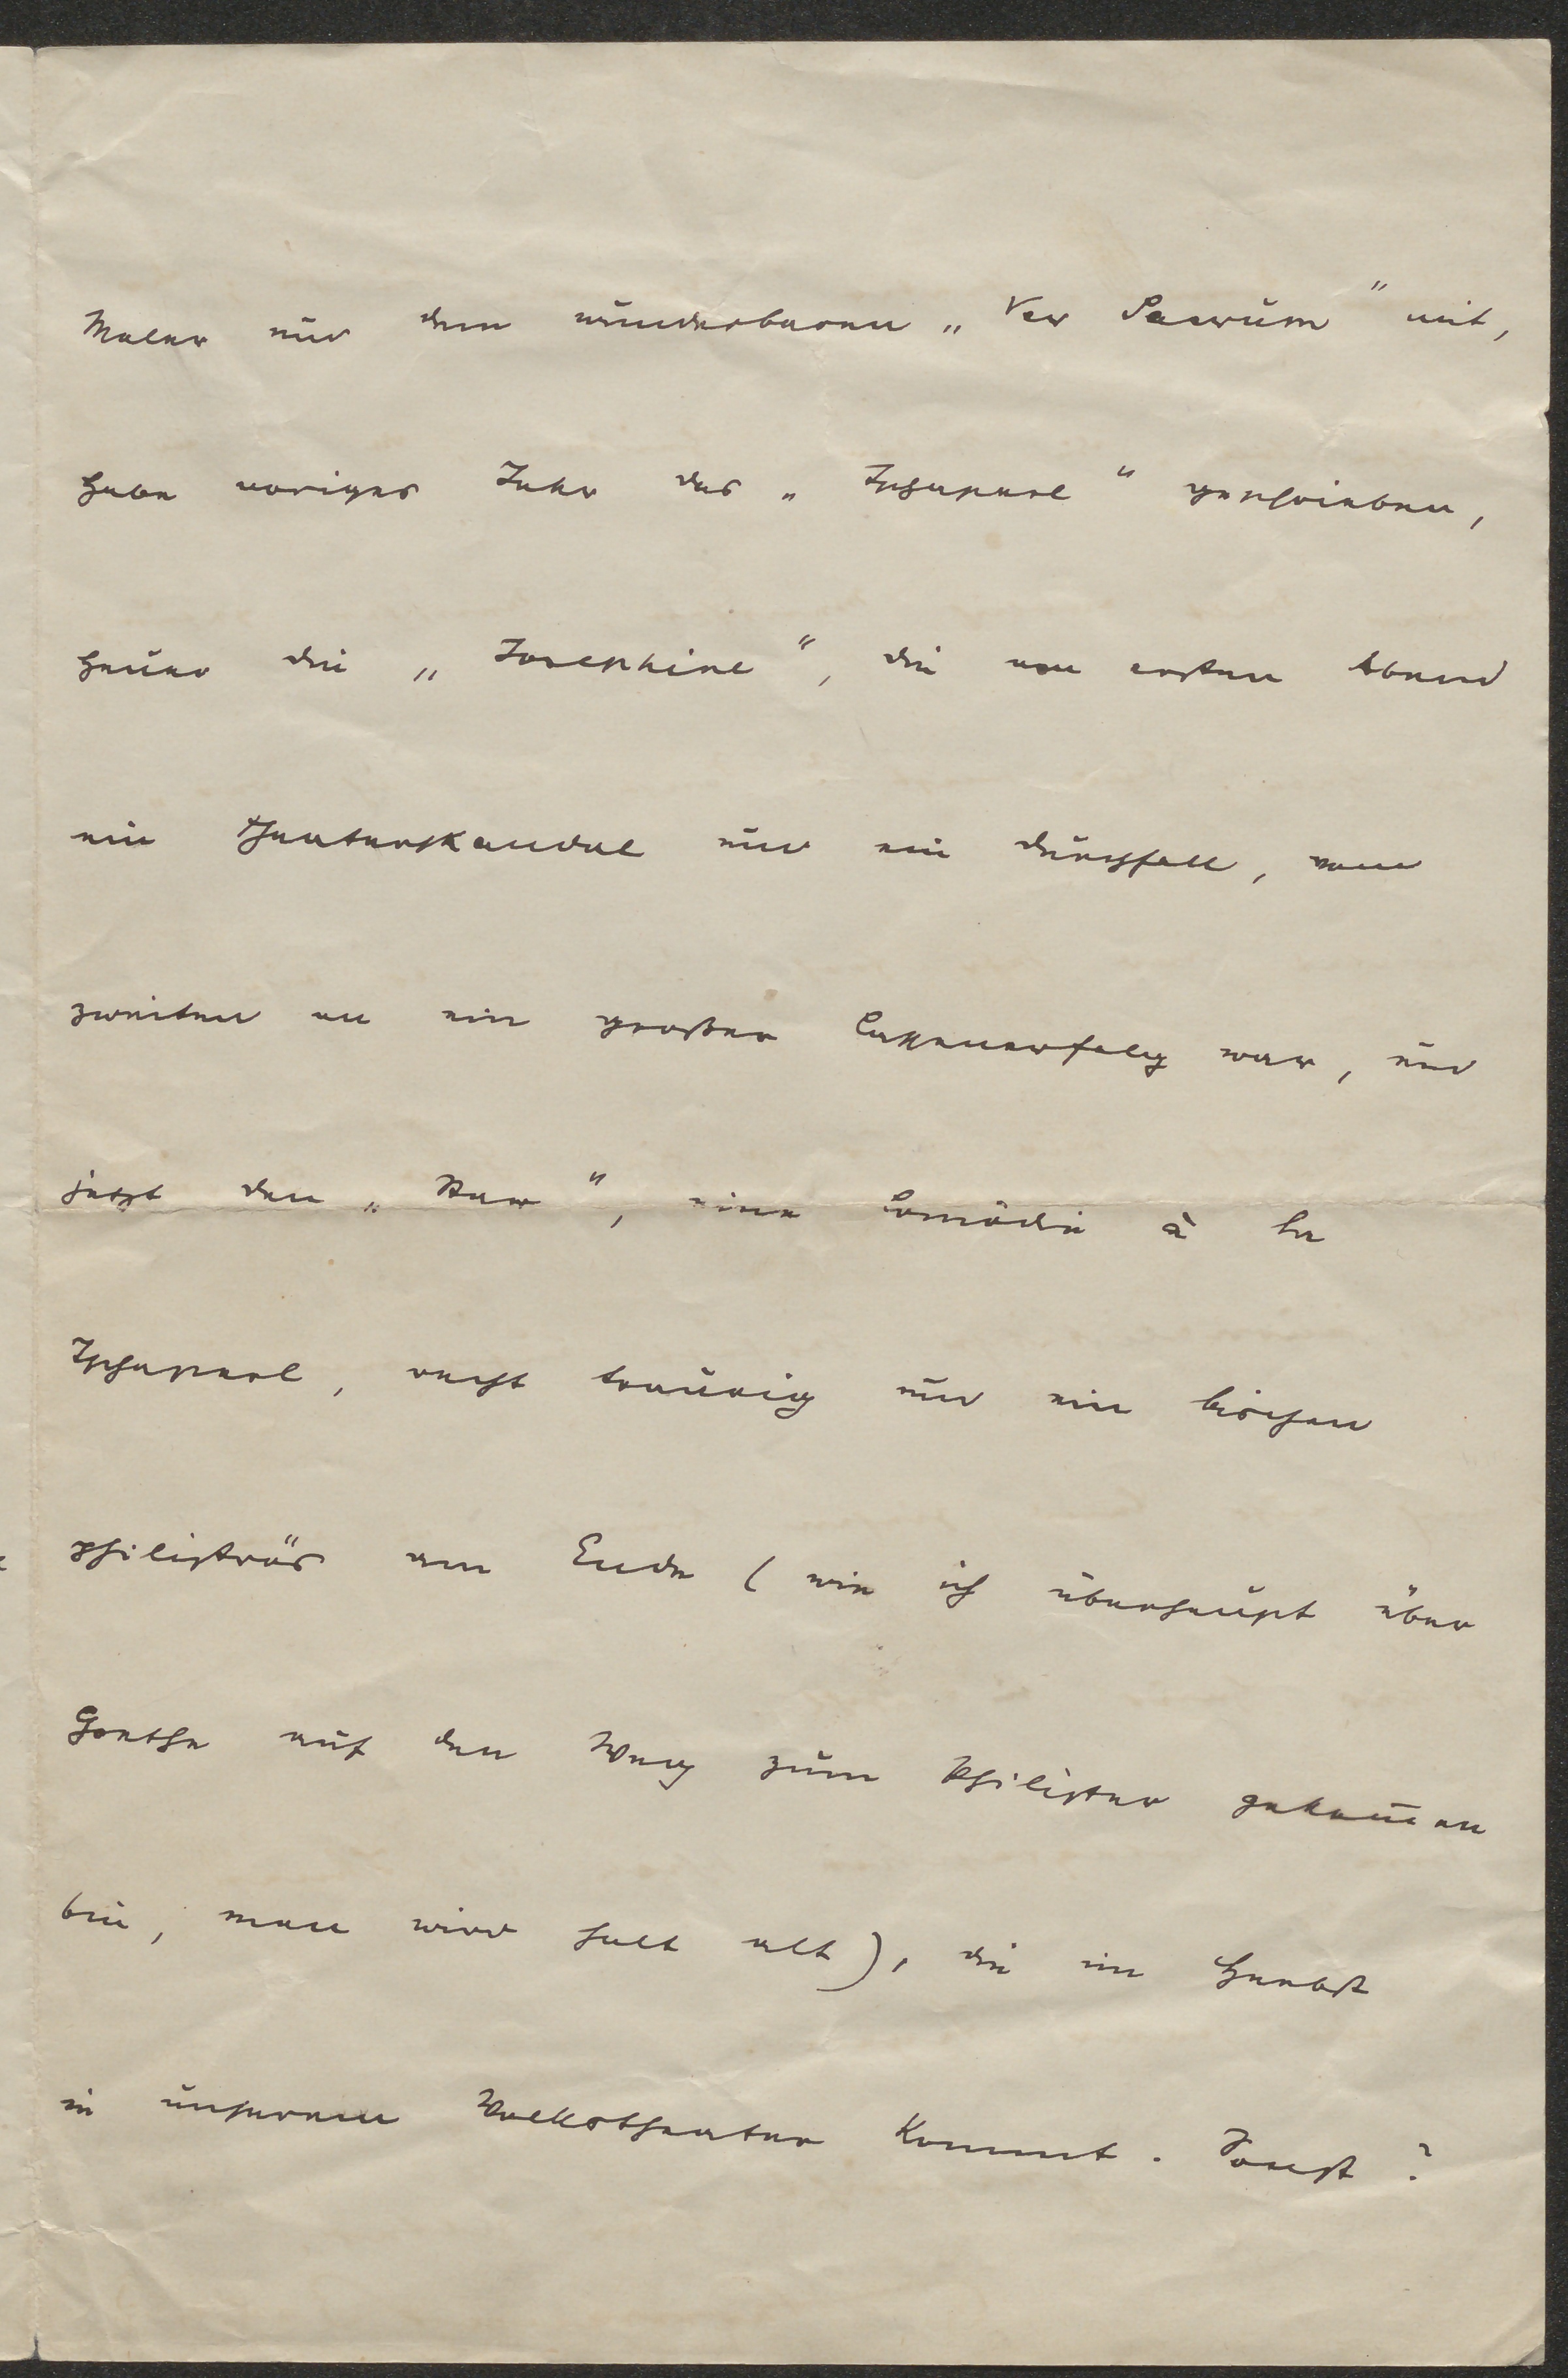 Maler und dem wunderbaren „Ver Sacrum" mit,
habe voriges Jahr das „Tschaperl" geschrieben,
heuer die „Josephine", die am ersten Abend
ein Theaterskandal und ein Durchfall, vom
zweiten an ein großer Cassenerfolg war, und
jetzt den „Star", eine Comödie à la
Tschaperl, recht traurig und ein bischen
philiströs am Ende (wie ich überhaupt über
Goethe auf den Weg zum Philister gekom̄en
bin, man wird halt alt), die im Herbst
in unserem Volkstheater kommt. Sonst?